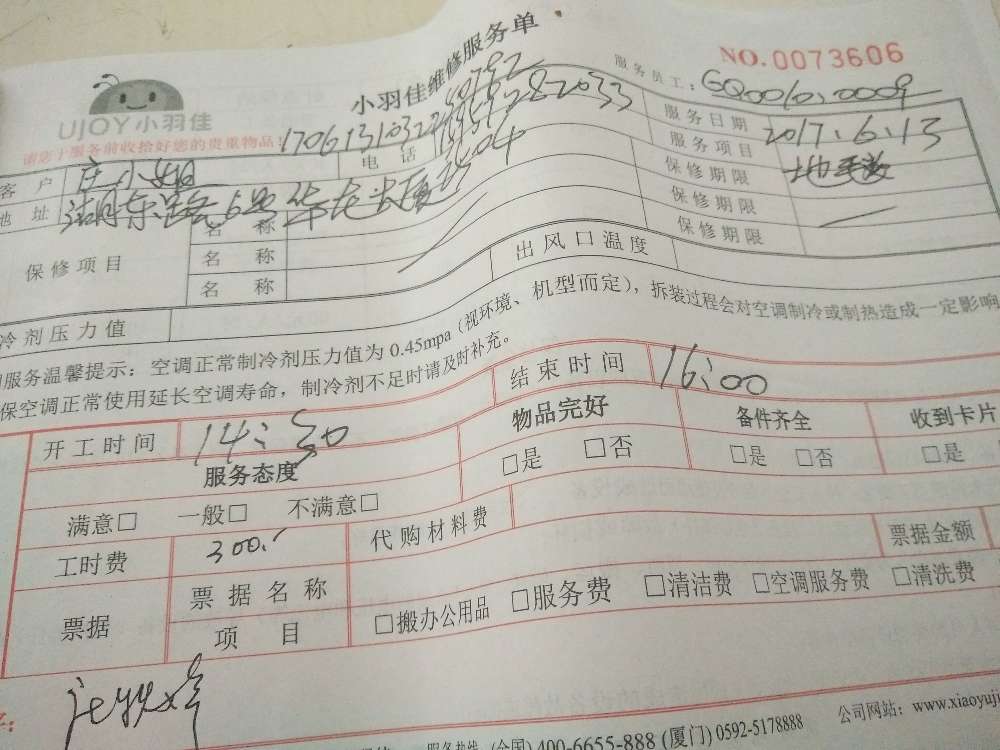 小羽佳维修服务单
NO.0073606
UJOY小羽佳
服务员工：GQ0010.0009
请您于服务前收拾好您的贵重物品！
客户 庄小姐 电话 服务日期 2017.6.13
地址 湖东路 服务项目
保修项目 名称 保修期限
名称 保修期限
名称 保修期限
冷剂压力值 出风口温度
服务温馨提示：空调正常制冷剂压力值为 0.45mpa（视环境、机型而定），拆装过程会对空调制冷或制热造成一定影响
保空调正常使用延长空调寿命，制冷剂不足时请及时补充。
开工时间 14:30 结束时间 16:00
服务态度 物品完好 备件齐全 收到卡片
满意□ 一般□ 不满意□ □是 □否 □是 □否 □是
工时费 300. 代购材料费 票据金额
票据 票据名称
项目 □搬办公用品 □服务费 □清洁费 □空调服务费 □清洗费
服务热线 (全国) 400-6655-888 (厦门) 0592-5178888 公司网站：www.xiaoyuji